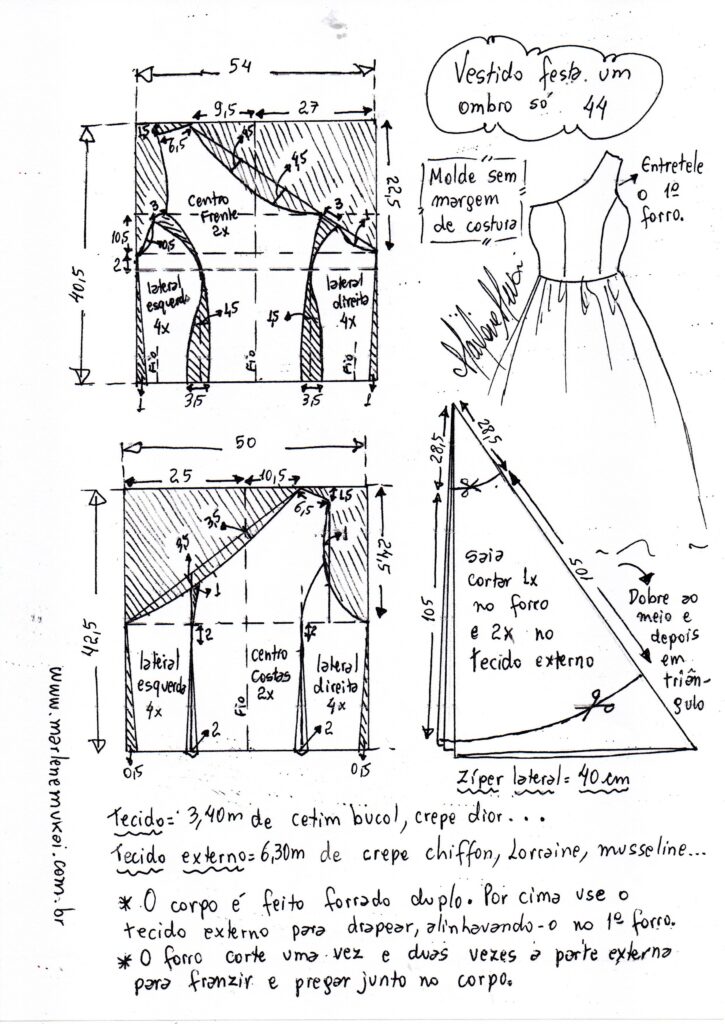 Vestido festa um
ombro só 44
Molde sem
margem
de costura
Entretele
o 1º
forro.
54
9,5
27
1,5
6,5
4,5
4,5
22,5
3
3
10,5
0,5
2
40,5
Centro
Frente
2x
lateral
esquerda
4x
lateral
direita
4x
1,5
1,5
Fio
Fio
Fio
1
3,5
3,5
1
50
25
10,5
3,5
6,5
1,5
3,5
1
1
24,5
42,5
2
2
lateral
esquerda
4x
centro
costas
2x
lateral
direita
4x
Fio
2
2
0,5
0,5
28,5
28,5
105
105
saia
cortar 1x
no forro
e 2x no
tecido externo
Dobre ao
meio e
depois
em
triân-
gulo
Zíper lateral= 40cm
Tecido= 3,40m de cetim bucol, crepe dior...
Tecido externo= 6,30m de crepe chiffon, Lorraine, musseline...
* O corpo é feito forrado duplo. Por cima use o
tecido externo para drapear, alinhavando-o no 1º forro.
* O forro corte uma vez e duas vezes a parte externa
para franzir e pregar junto no corpo.
www.marlenemukai.com.br